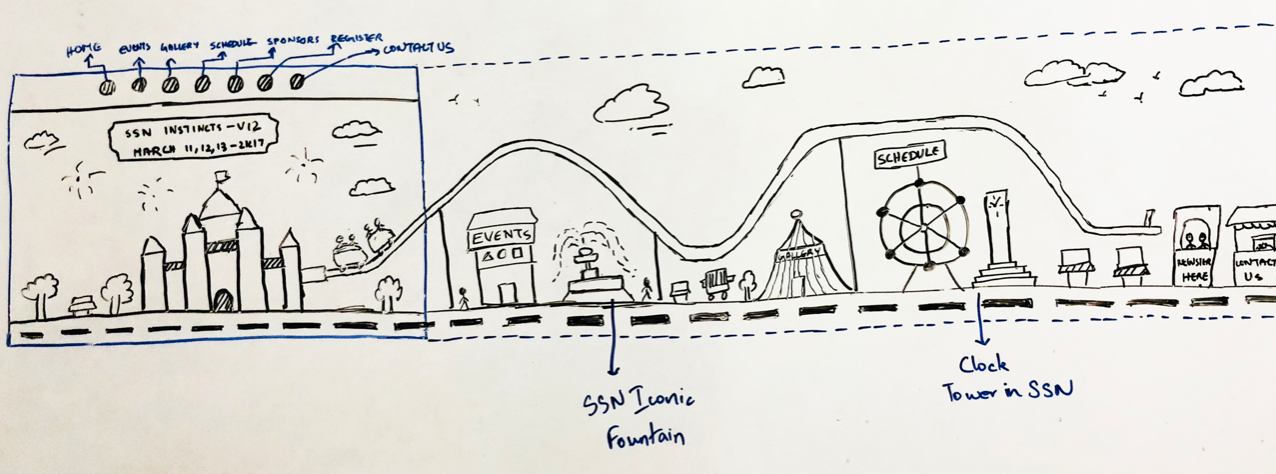 HOME
EVENTS
GALLERY
SCHEDULE
SPONSORS
REGISTER
CONTACT US
SSN INSTINCTS-V12
MARCH 11,12,13-2K17
EVENTS
GALLERY
SCHEDULE
REGISTER
HERE
CONTACT
US
SSN Iconic
Fountain
Clock
Tower in SSN